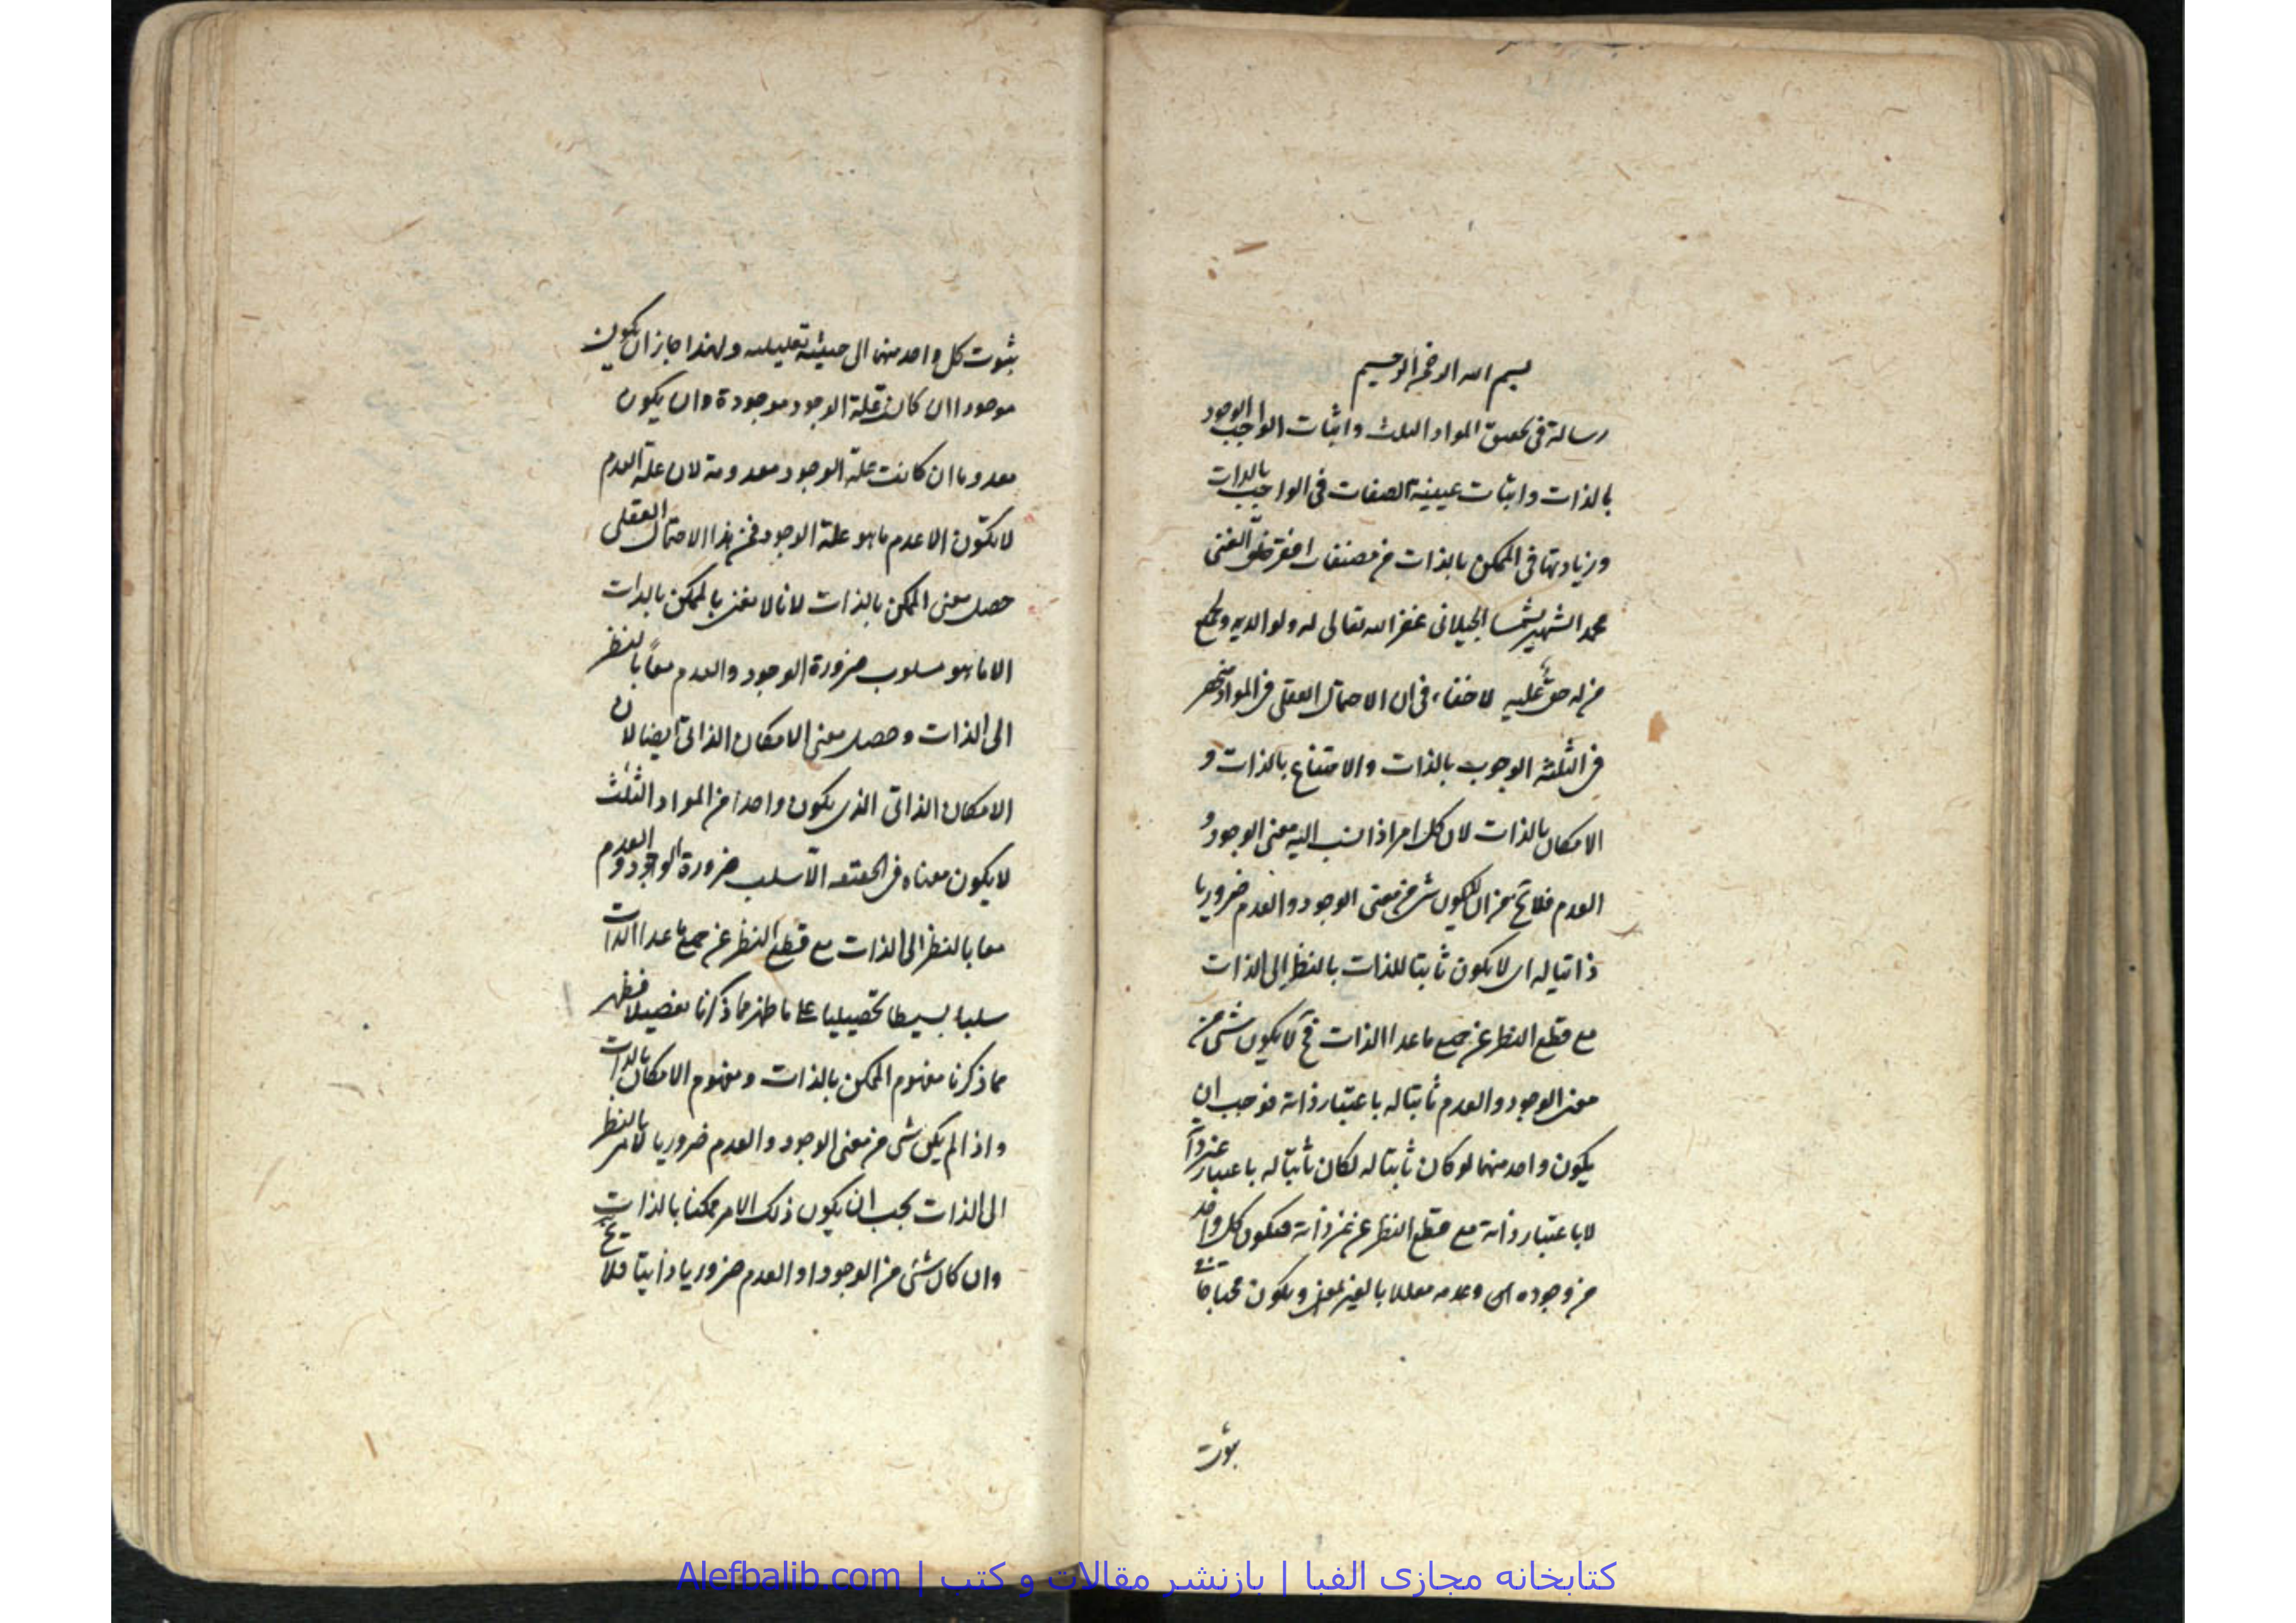 بسم الله الرحمن الرحيم
رسالة فى تحقيق المواد الثلث واثبات الواجب الوجود
بالذات واثبات عينية الصفات فى الواجب بالذات
وزيادتها فى الممكن بالذات من مصنفات افقر خلق الغنى
محمد الشهير بشمسا الجيلانى غفر الله تعالى له ولوالديه ولجميع
من له حق عليه لا خفاء فى ان الاحتمال العقلى فى المواد منحصر
فى الثلثة الوجوب بالذات والامتناع بالذات و
الامكان بالذات لان كل امر اذا نسب اليه معنى الوجود و
العدم فلا يخ من ان لا يكون شئ من معنى الوجود والعدم ضروريا
ذاتيا له اى لا يكون ثابتا للذات بالنظر الى الذات
مع قطع النظر عن جميع ما عدا الذات فح لا يكون شئ من
معنى الوجود والعدم ثابتا له باعتبار ذاته فوجب ان
يكون واحد منهما لو كان ثابتا له لكان ثابتا له باعتبار غير ذاته
لا باعتبار ذاته مع قطع النظر عن غير ذاته فيكون كل واحد
من وجوده اى وعدمه معللا بالغير ويكون محتاجا فى
ثبوت
ثبوت كل واحد منهما الى حيثية تعليلية ولهذا جاز ان يكون
موجودا ان كانت علة الوجود موجودة وان يكون
معدوما ان كانت علة الوجود معدومة لان علة العدم
لا تكون الا عدم ما هو علة الوجود فمن هذا الاحتمال العقلى
حصل معنى الممكن بالذات لانا لا نعنى بالممكن بالذات
الا ما هو مسلوب ضرورة الوجود والعدم معا بالنظر
الى الذات وحصل معنى الامكان الذاتى ايضا لان
الامكان الذاتى الذى يكون واحدا من المواد الثلث
لا يكون معناه فى الحقيقة الا سلب ضرورة الوجود والعدم
معا بالنظر الى الذات مع قطع النظر عن جميع ما عدا الذات
سلبا بسيطا تحصيليا على ما ظهر مما ذكرنا تفصيلا فظهر
مما ذكرنا مفهوم الممكن بالذات ومفهوم الامكان بالذات
واذا لم يكن شئ من معنى الوجود والعدم ضروريا لامر بالنظر
الى الذات يجب ان يكون ذلك الامر ممكنا بالذات
وان كان شئ من الوجود او العدم ضروريا ذاتيا فلا يخ
كتابخانه مجازی الفبا | بازنشر مقالات و کتب | Alefbalib.com